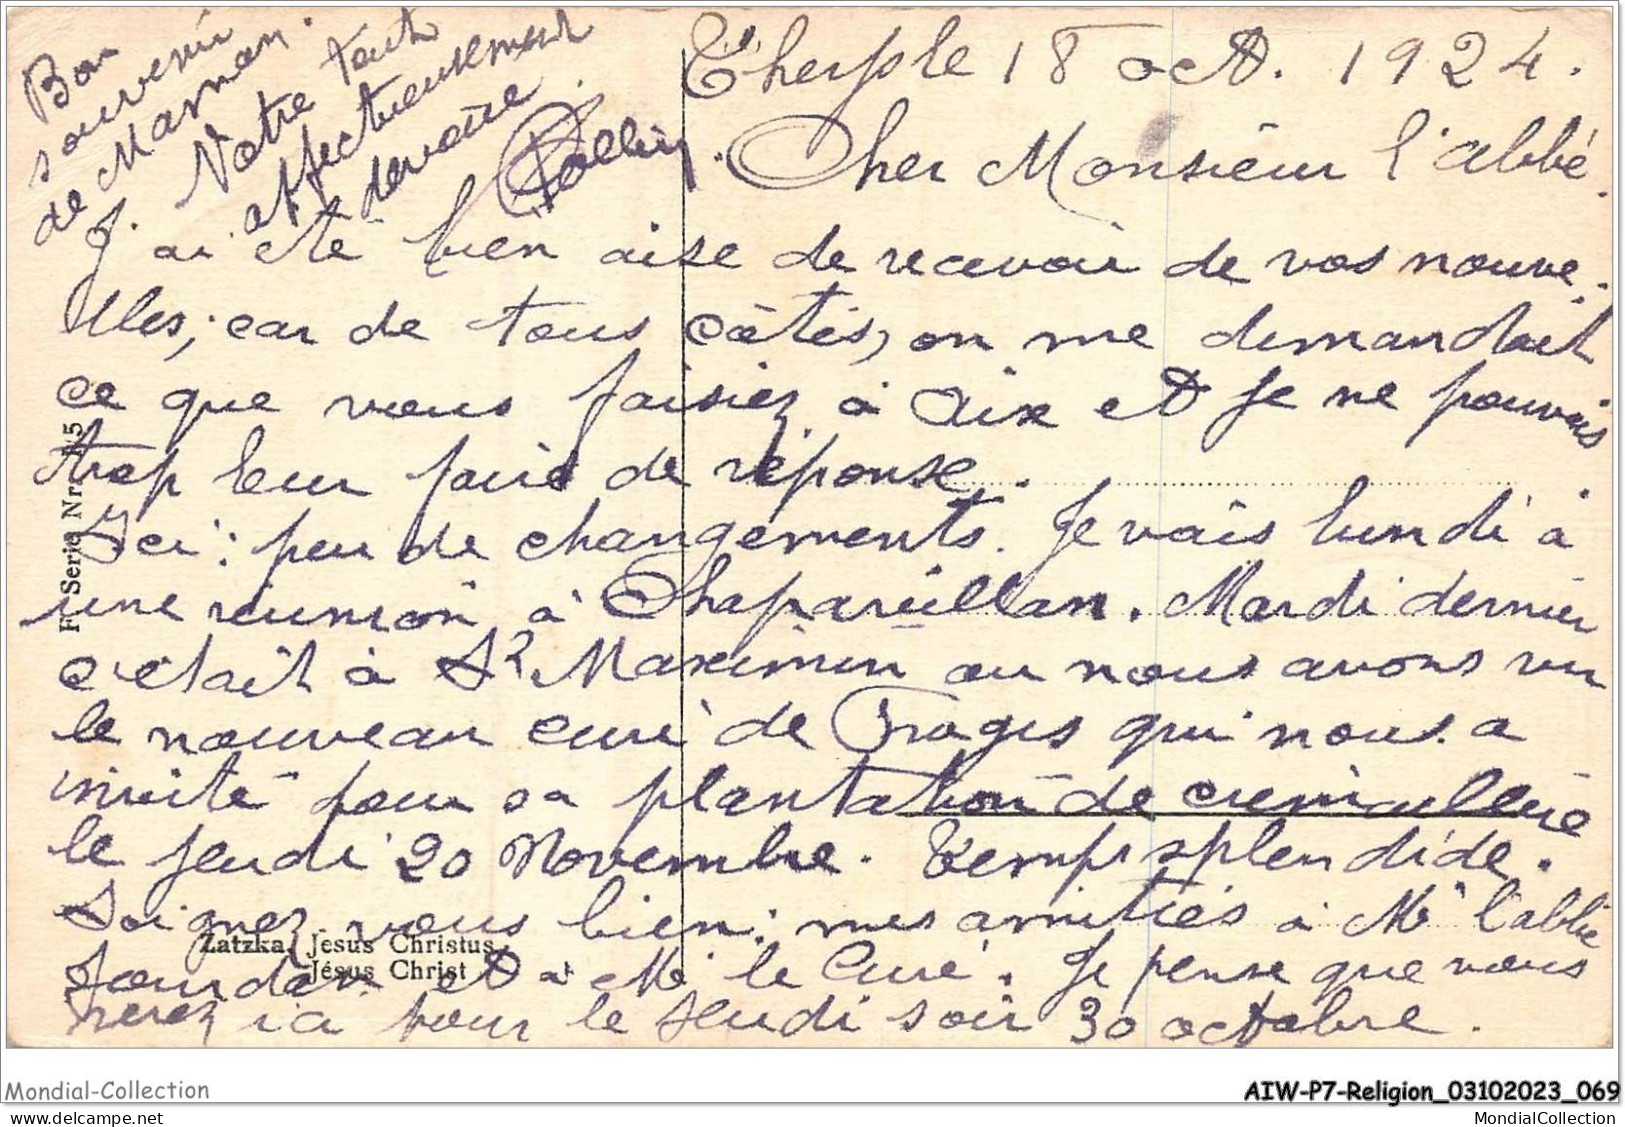 18 oct. 1924.
Cher Monsieur l'abbé.
J'ai été bien aise de recevoir de vos nouve-
lles; car de tous côtés, on me demandait
ce que vous faisiez à Aix et je ne pouvais
trop leur faire de réponse.
Ici: peu de changements. Je vais lundi à
une réunion à Chapareillan. Mardi dernier
c'était à St Maximin où nous avons vu
le nouveau curé de Froges qui nous a
invité pour sa plantation de
le jeudi 20 Novembre. Temps splendide.
Soignez vous bien: mes amitiés à Mr l'abbé
Jourdan et à Mr le Curé. Je pense que vous
serez ici pour le jeudi soir 30 octobre.
Bon
souvenir
de Maman.
Votre tout
affectueusement
F. Serie Nr.
Zatzka, Jesus Christus
Jésus Christ
Mondial-Collection
AIW-P7-Religion_03102023_069
www.delcampe.net
MondialCollection